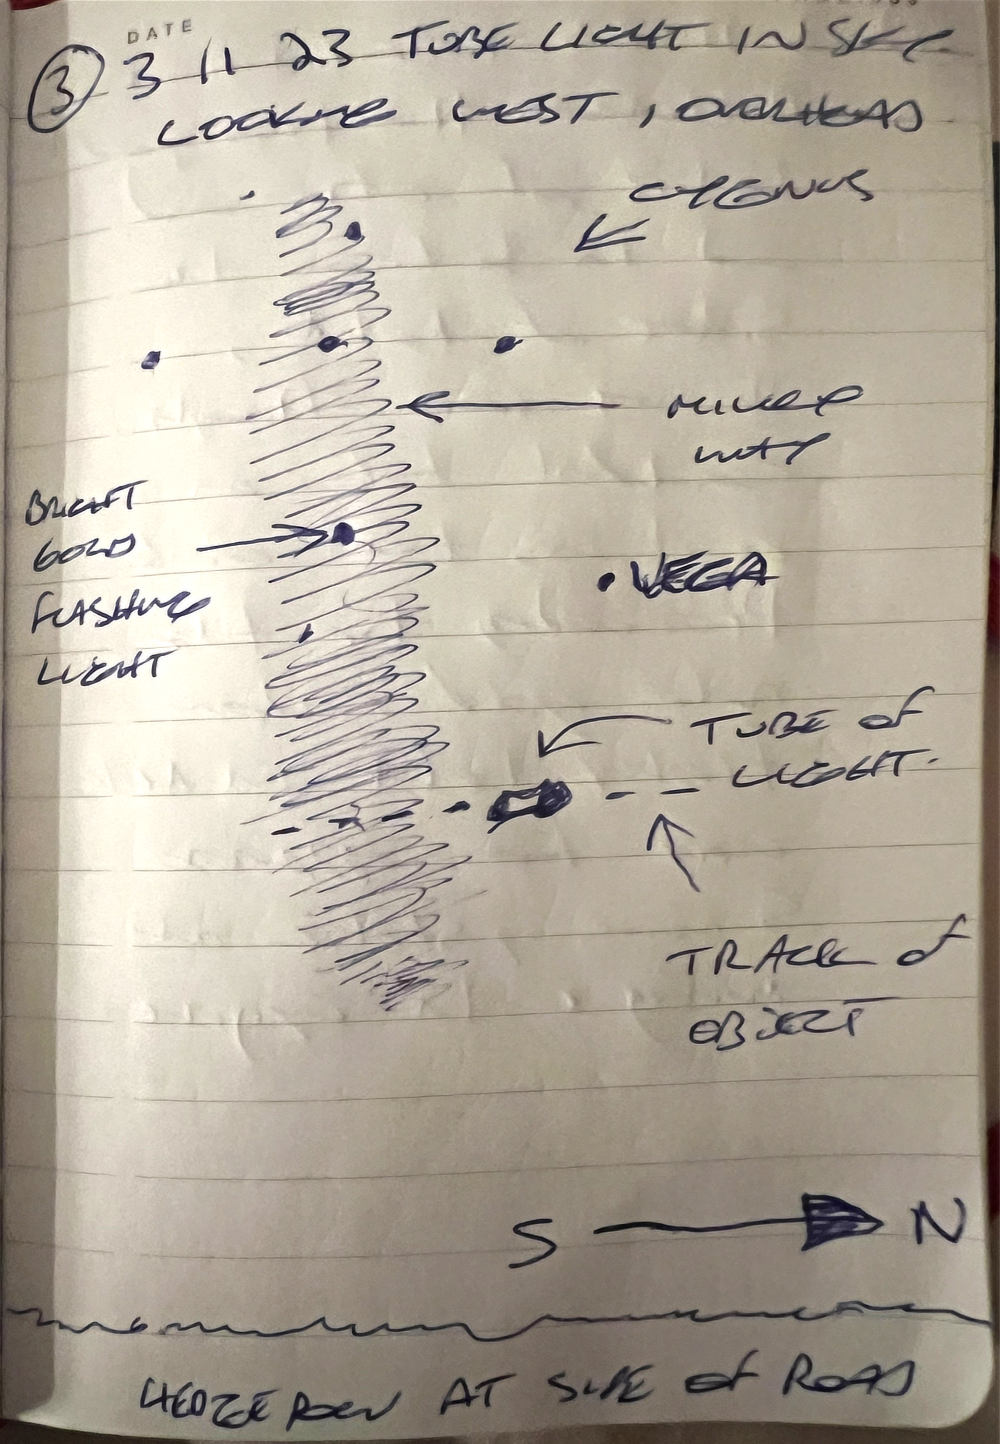 DATE
3 3 11 23 TUBE LIGHT IN SKY
LOOKING WEST, OVERHEAD
CYGNUS
MILKY
WAY
BRIGHT
GOLD
FLASHING
LIGHT
VEGA
TUBE OF
LIGHT.
TRACK OF
OBJECT
S N
HEDGEROW AT SIDE OF ROAD